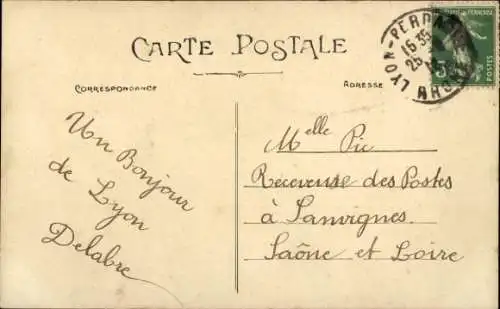 CARTE POSTALE
CORRESPONDANCE
ADRESSE
LYON-PERRACHE
RHONE
16 35
25
POSTES
Un Bonjour
de Lyon
Delabre
Melle Pic
Receveuse des Postes
à Sanvignes
Saône et Loire